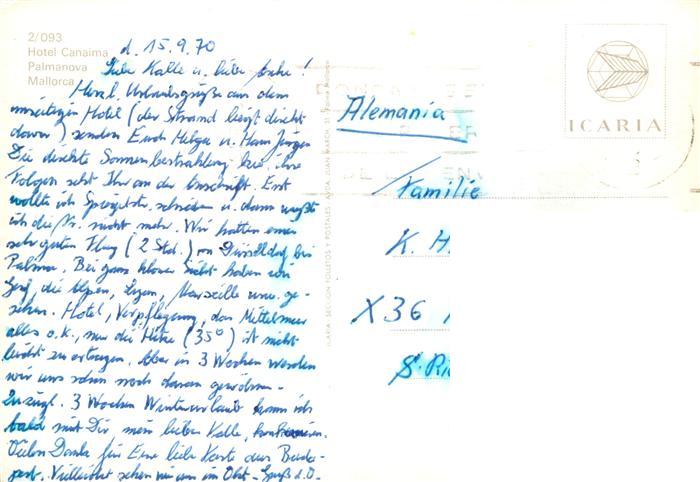 2/093
Hotel Canaima
Palmanova
Mallorca
d. 15.9.70
Kalle u. liebe
Herzl. Urlaubsgrüße aus dem
umseitigen Hotel (der Strand liegt direkt
davor) senden Euch Helga u. Hans Jürgen
Die direkte Sonnenbestrahlung hier, ihre
Folgen seht Ihr an der Anschrift. Erst
wollte ich schreiben u. dann wußte
ich die Nr. nicht mehr. Wir hatten einen
sehr guten Flug (2 Std.) von Düsseldorf bis
Palma. Bei ganz klarer Sicht haben wir
Genf, die Alpen, Lyon, Marseille usw. ge-
sehen. Hotel, Verpflegung, das Mittelmeer
alles o.k., nur die Hitze (35°) ist nicht
leicht zu ertragen. Aber in 3 Wochen werden
wir uns schon noch daran gewöhnen.
3 Wochen Winterurlaub kann ich
bald mit Dir, mein lieber Kalle, konkurrieren.
Vielen Dank für Eure liebe Karte aus Buda-
pest. Vielleicht sehen wir uns im Okt. - Gruß d.O.
ICARIA - SECCION FOLLETOS Y POSTALES AVDA. JUAN MARCH, 21
ICARIA
Alemania
Familie
K. H
X36